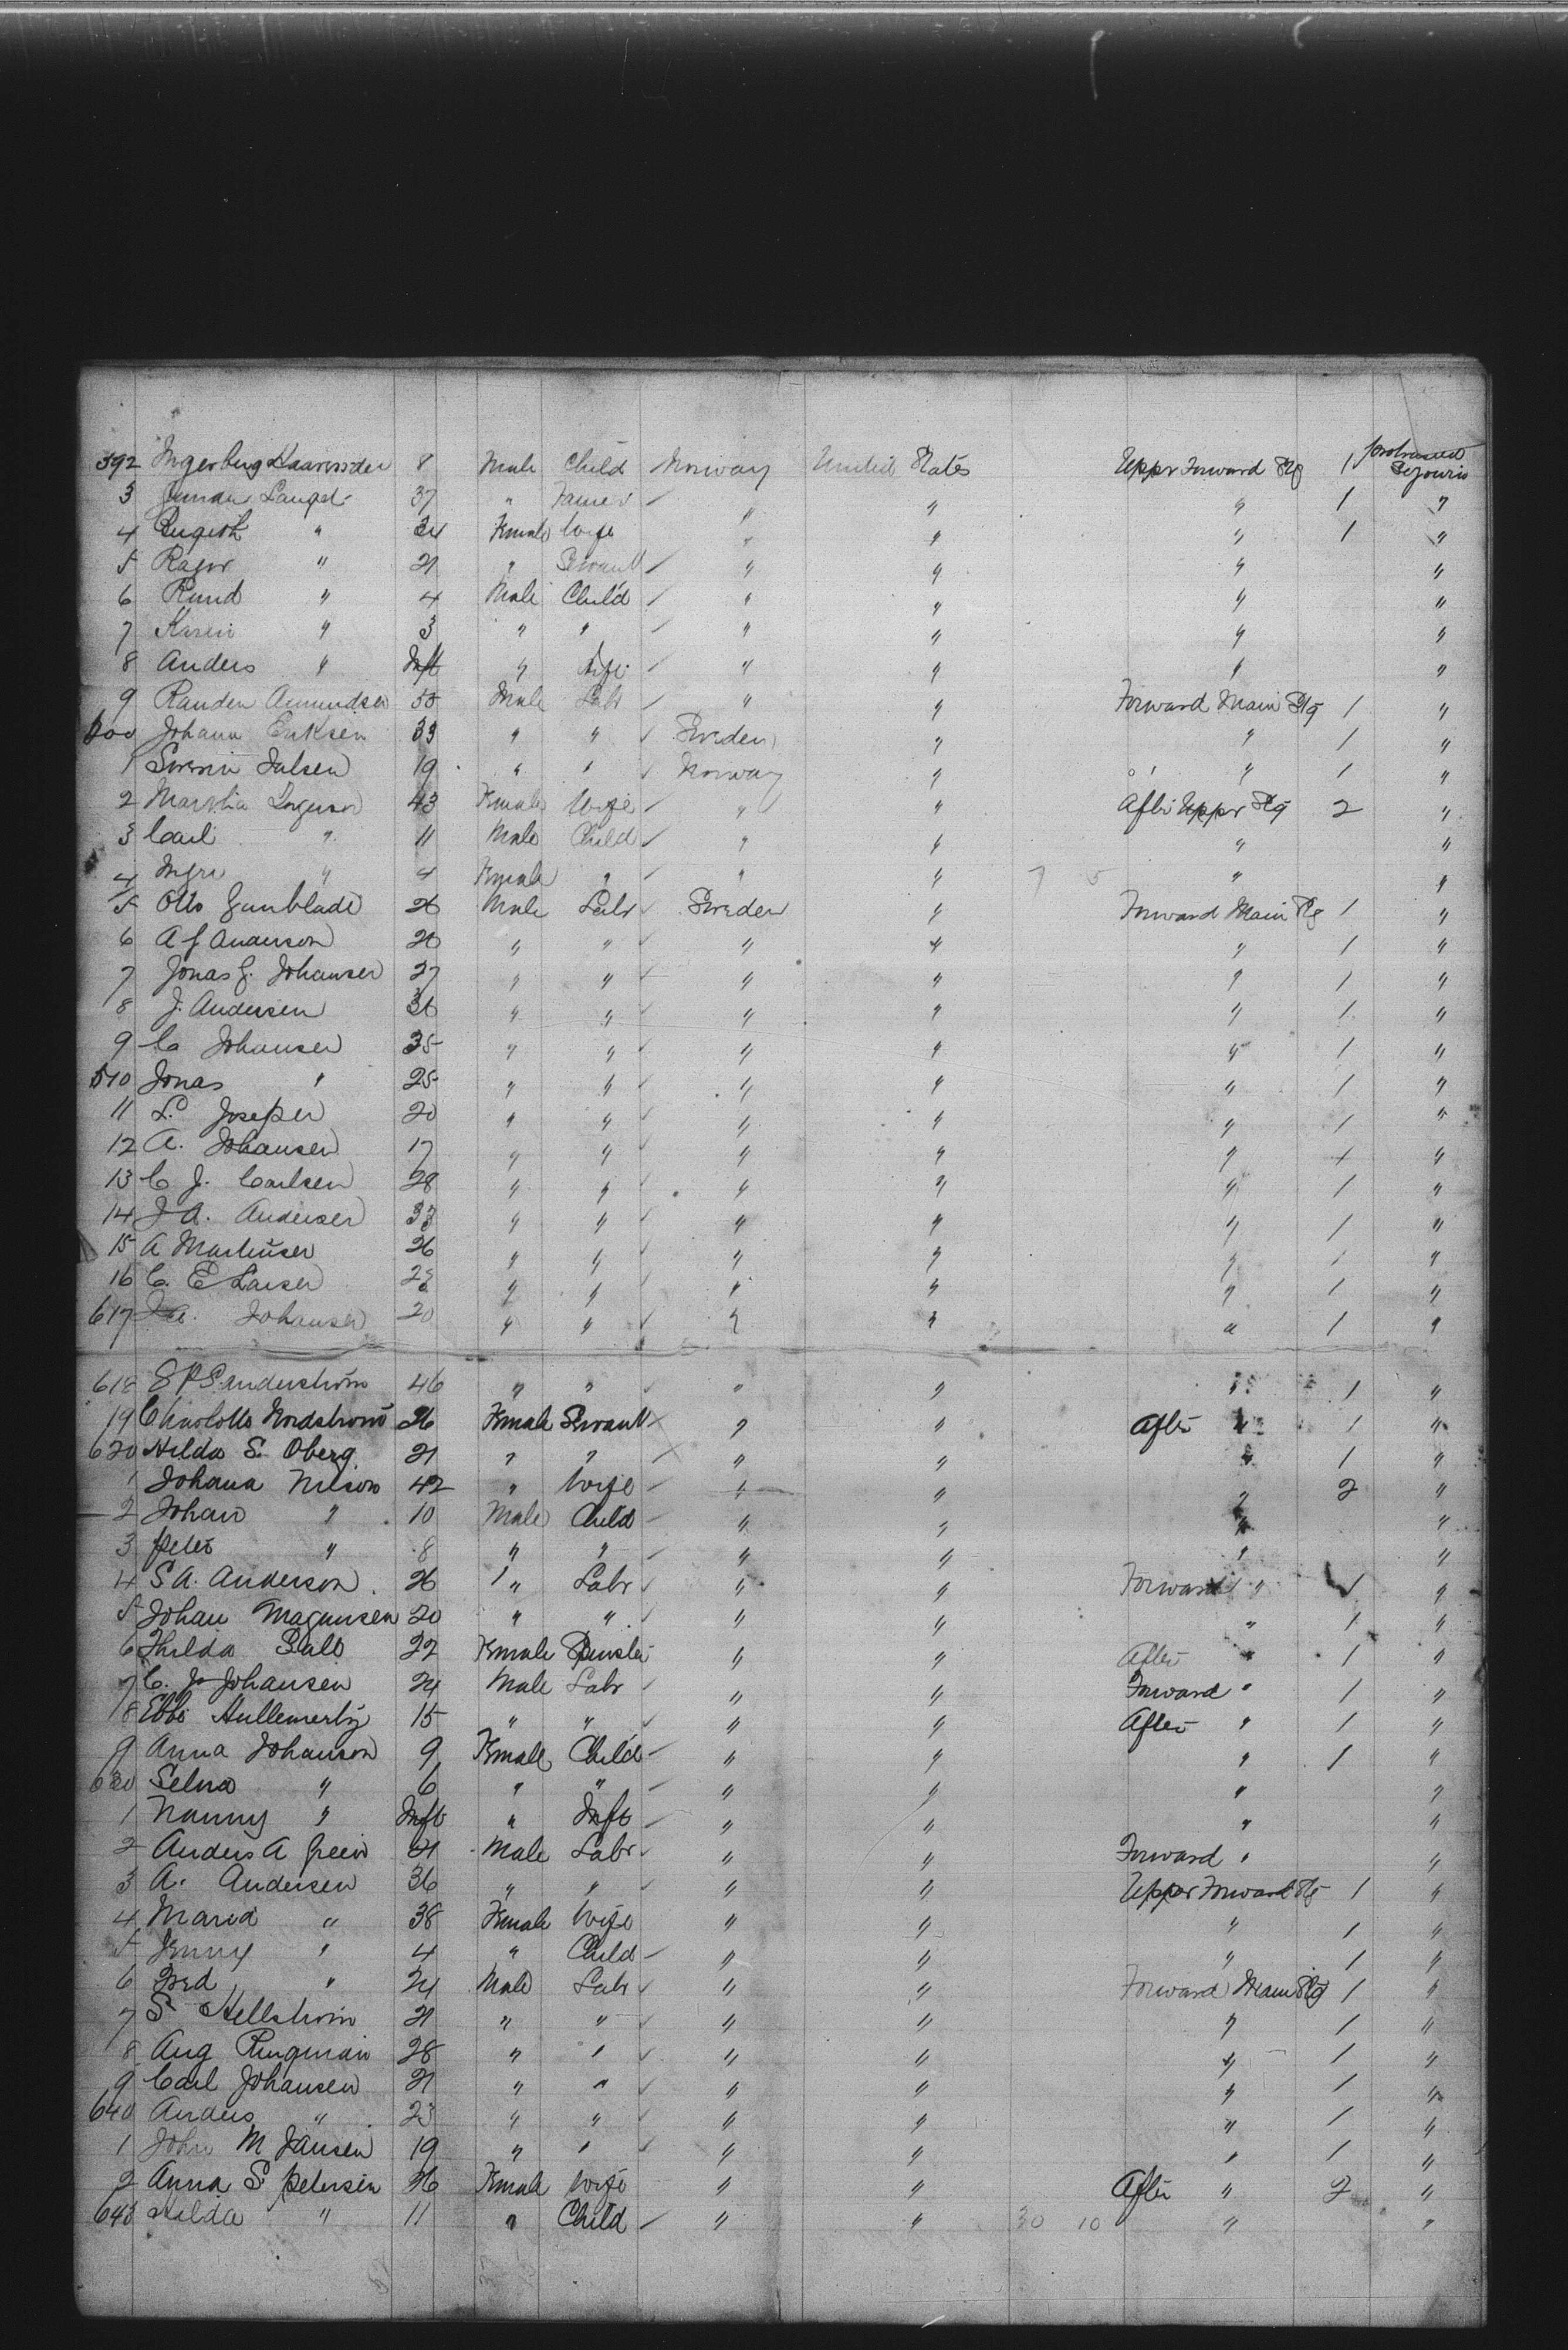 392 8 Male Child Norway United States Upper Forward Stg 1 protracted Sejouris
3 37 " Farmer " " " 1 "
4 " 34 Female Wife " " " 1 "
5 Ragnr " 21 " Servant " " " "
6 " 4 Male Child " " " "
7 Karen " 3 " " " " " "
8 Anders " Inft " " " " "
9 Randen Amundsen 55 Male Labr " " Forward Main Stg 1 "
600 Johann Eriksen 33 " " Sweden " " 1 "
1 19 " " Norway " " 1 "
2 43 Female Wife " " After Upper Stg 2 "
3 Carl " 11 Male Child " " " "
4 " 4 Female " " " 7 5 " "
5 Otto 26 Male Labr Sweden " Forward Main Stg 1 "
6 A J Anderson 20 " " " " " 1 "
7 Jonas J. Johansen 27 " " " " " 1 "
8 J. Andersen 36 " " " " " 1 "
9 C Johansen 35 " " " " " 1 "
610 Jonas " 25 " " " " " 1 "
11 20 " " " " " 1 "
12 A. Johansen 17 " " " " " 1 "
13 C J. Carlsen 28 " " " " " 1 "
14 J A. Andersen 33 " " " " " 1 "
15 A 26 " " " " " 1 "
16 C. E Larsen " " " " " 1 "
617 Johansen 20 " " " " " 1 "
618 46 " " " " " 1 "
19 Charlotte Nordstrom 26 Female Servant " " After " 1 "
620 Hilda S. Oberg 21 " " " " " 1 "
1 Johana Nelson 42 " Wife " " " 2 "
2 Johan " 10 Male Child " " " "
3 Peter " 8 " " " " " "
4 S A. Anderson 26 " Labr " " Forward " 1 "
5 Johan Magnusen 20 " " " " " 1 "
6 22 Female " " After " 1 "
7 C. J Johansen 24 Male Labr " " Forward " 1 "
8 Ebbe 15 " " " " After " 1 "
9 Anna Johanson 9 Female Child " " " 1 "
630 Selma " 6 " " " " " "
1 Nanny " Inft " Inft " " " "
2 Anders A Green Male Labr " " Forward " "
3 A. Andersen 36 " " " " Upper Forward Stg 1 "
4 Maria " 38 Female Wife " " " 1 "
5 Jenny " 4 " Child " " " 1 "
6 Fred " 24 Male Labr " " Forward Main Stg 1 "
7 S Hellstrom 21 " " " " " 1 "
8 Aug Ringman 28 " " " " " 1 "
9 Carl Johansen 21 " " " " " 1 "
640 Anders " 23 " " " " " 1 "
1 John M Jansen 19 " " " " " 1 "
2 Anna S Petersen 26 Female Wife " " After " 2 "
643 Hilda " 11 " Child " " 30 10 " "